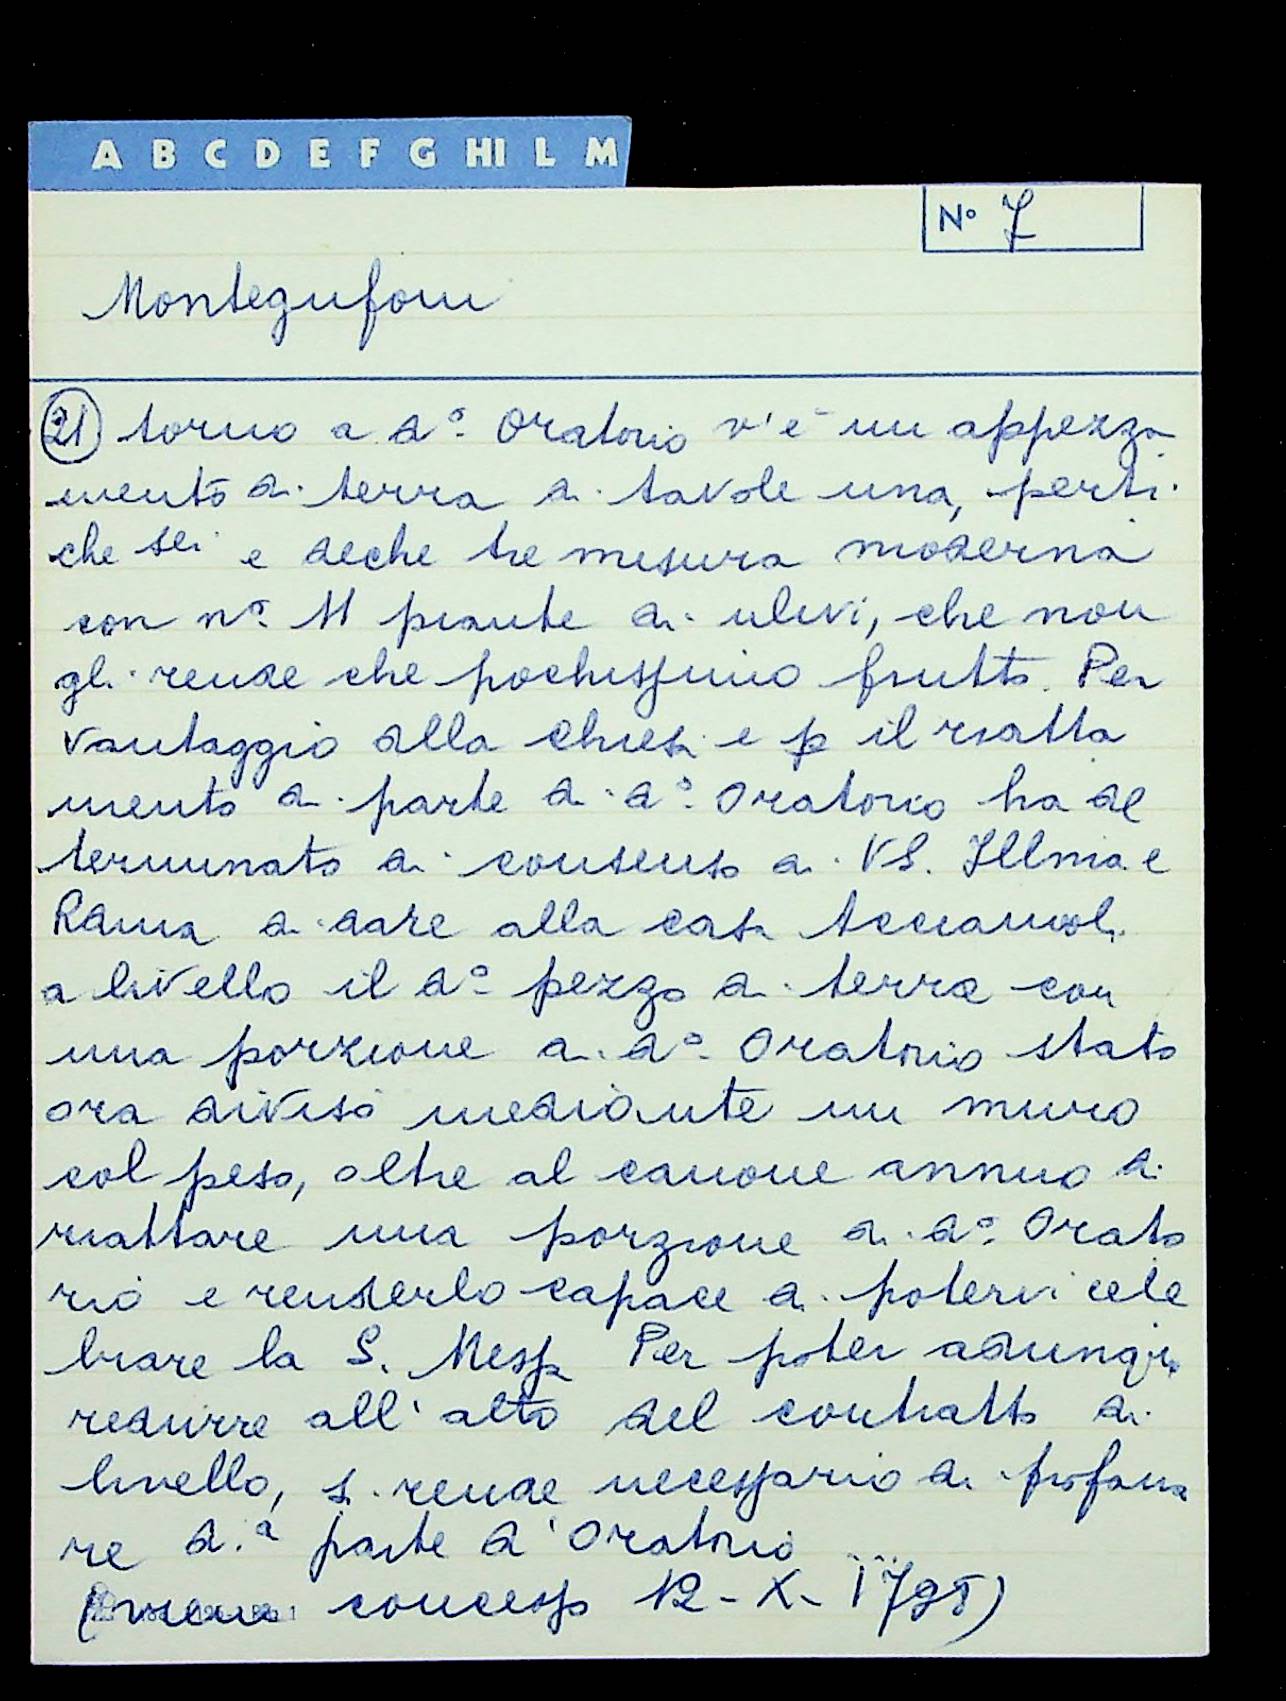 A B C D E F G HI L M
N° 7
Montegufoni
21 torno a d°. Oratorio v'è un appezza
mento di terra di tavole una, perti
che sei e deche tre misura moderna
con n°. 11 piante di ulivi, che non
gli rende che pochissimo frutto. Per
vantaggio alla chiesa e p il riatta
mento di parte di d°. Oratorio ha de
terminato di consenso di VS. Illma e
Rdma di dare alla casa Acciaiuoli
a livello il d°. pezzo di terra con
una porzione di d°. Oratorio stato
ora diviso mediante un muro
col peso, oltre al canone annuo di
riattare una porzione di d°. Orato
rio e renderlo capace di potervi cele
brare la S. Messa Per poter adunque
redurre all'atto del contratto di
livello, si rende necessario di profana
re d.ª parte d'Oratorio
(viene concesso 12-X-1795)